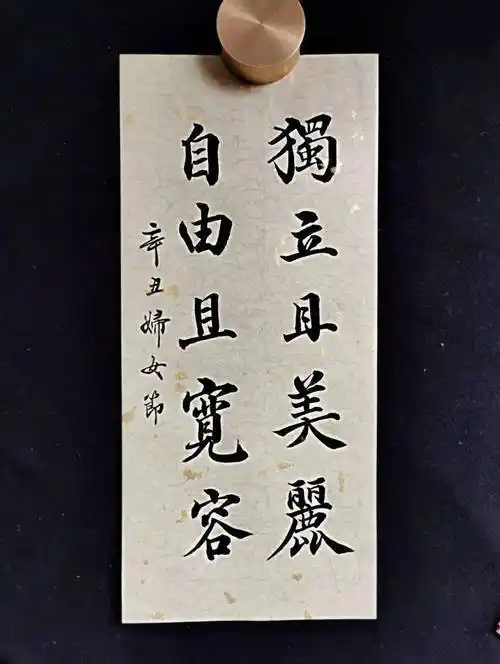 獨立且美麗
自由且寬容
辛丑婦女節